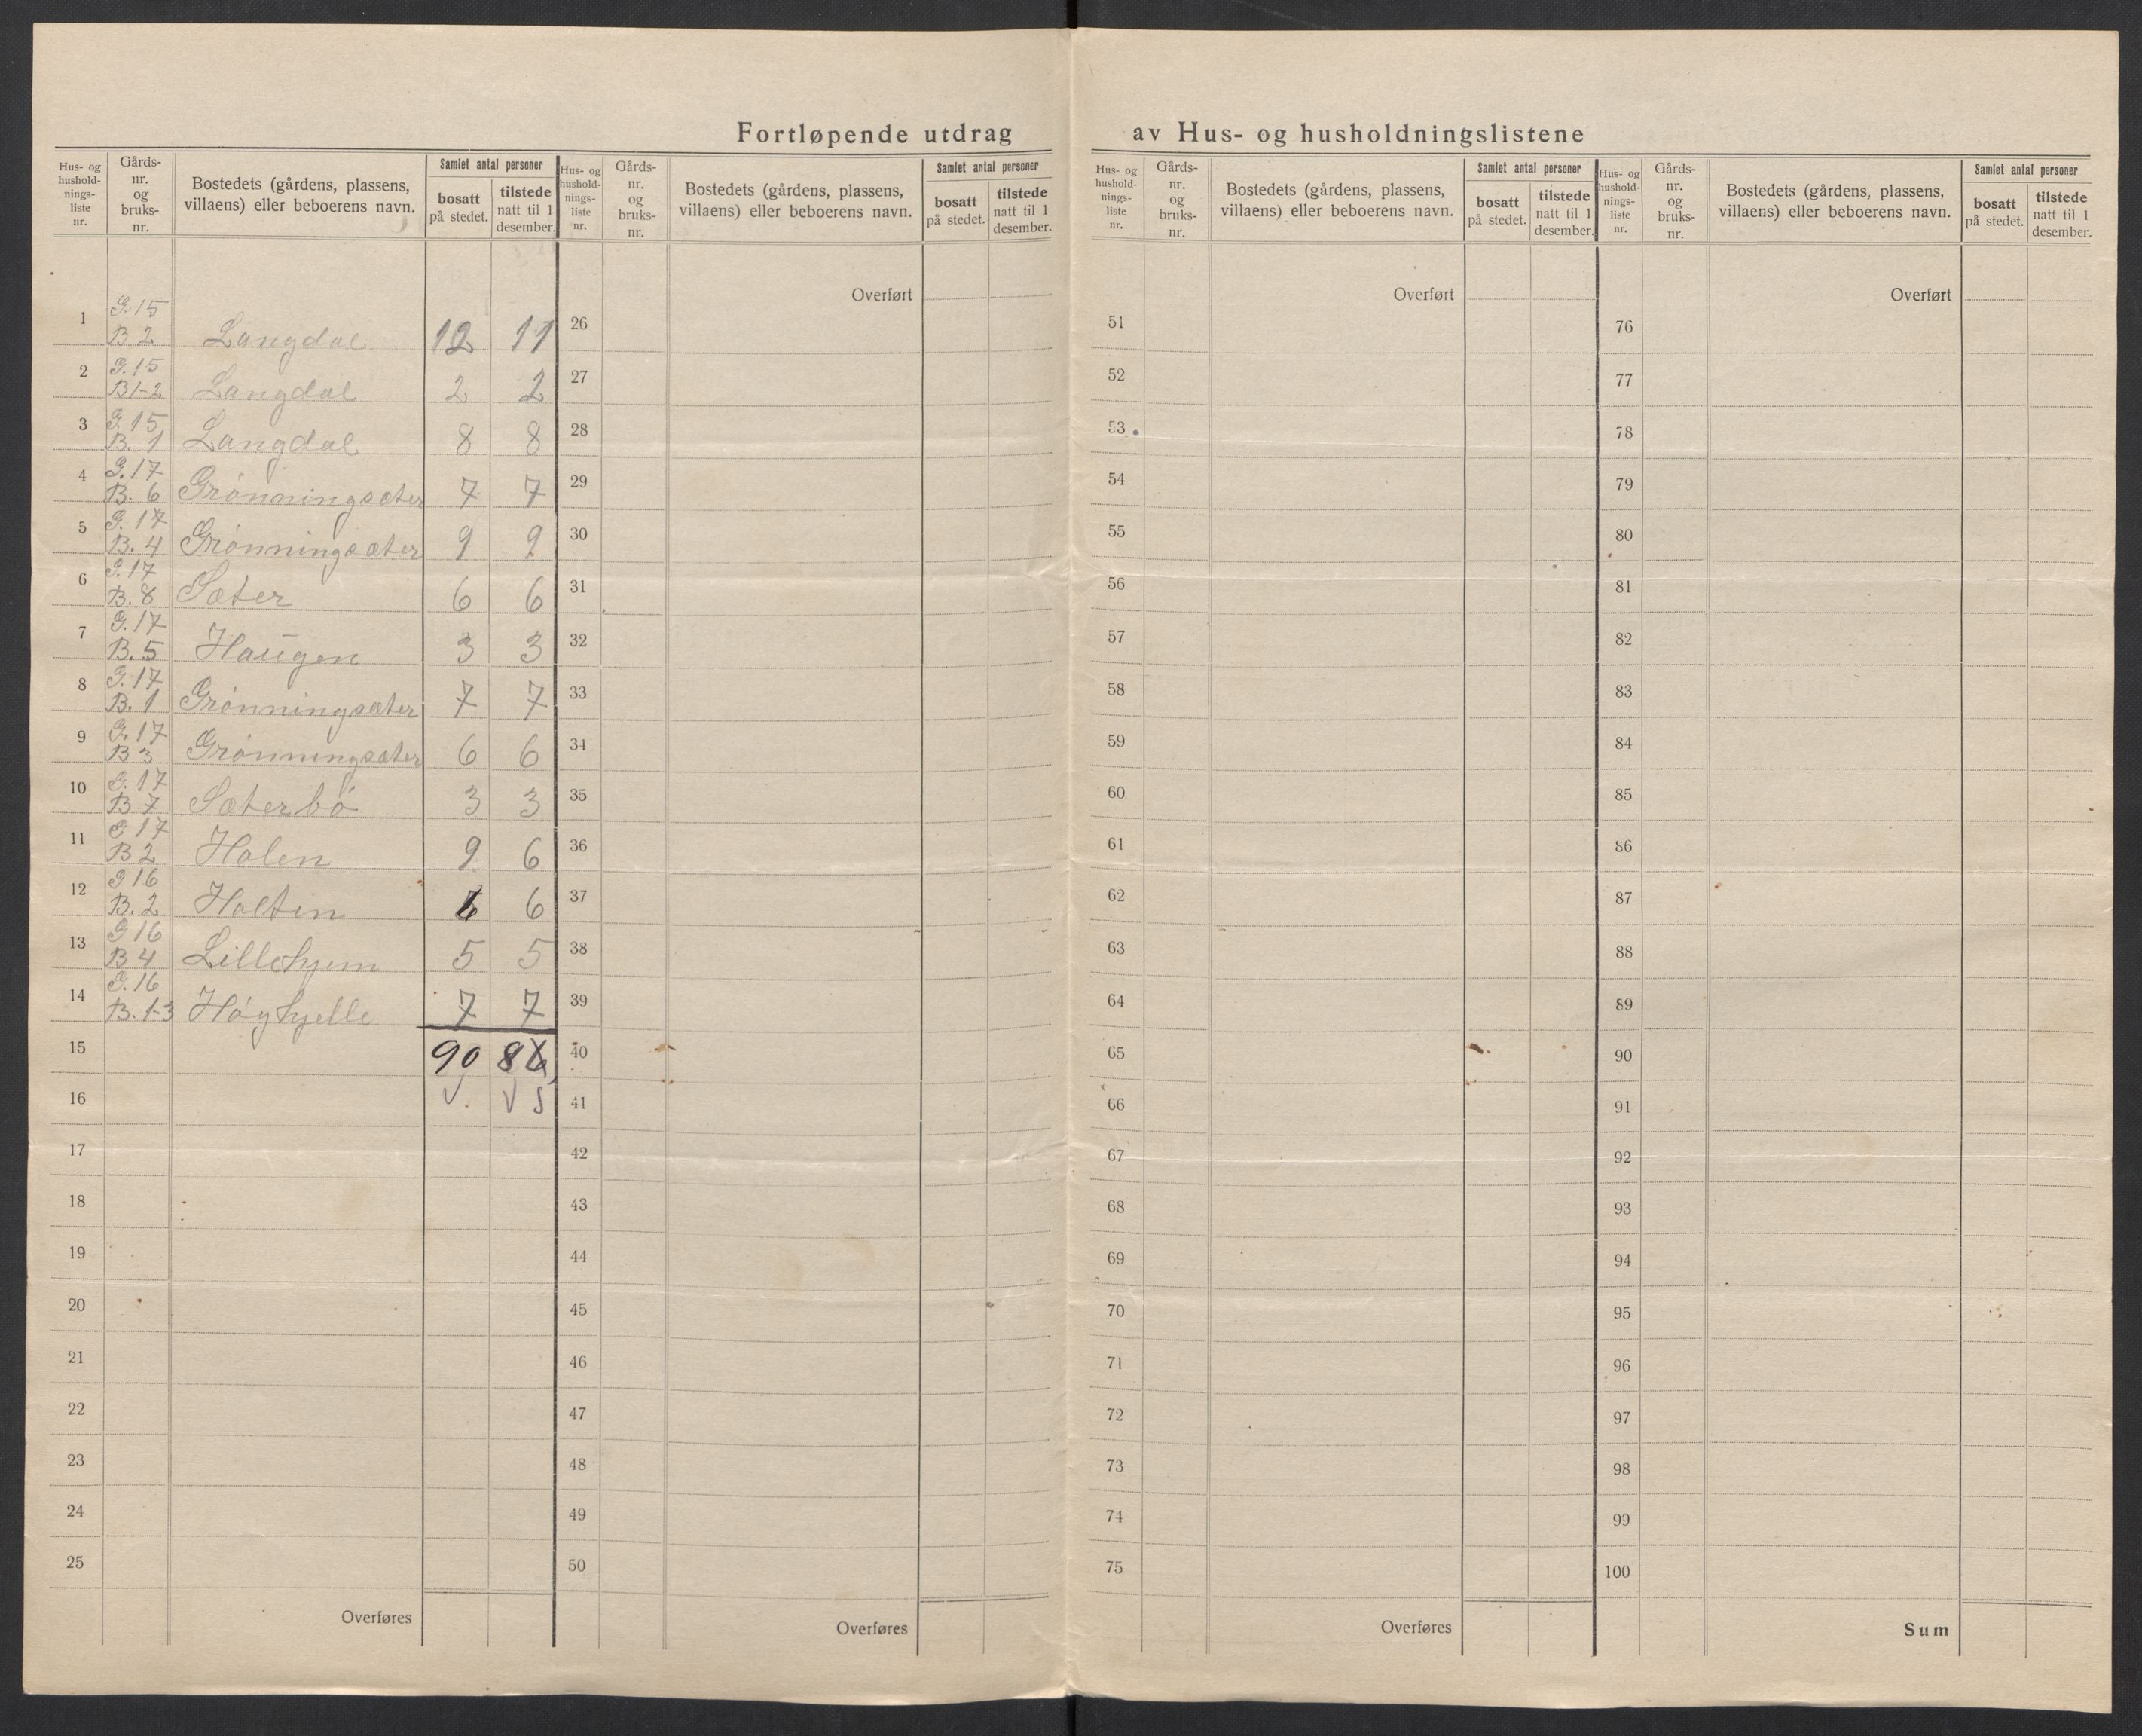 Fortløpende utdrag av Hus- og husholdningslistene
Hus- og hushold-nings-liste nr. Gårds-nr. og bruks-nr. Bostedets (gårdens, plassens, villaens) eller beboerens navn. Samlet antal personer bosatt på stedet. tilstede natt til 1 desember.
Hus- og hushold-nings-liste nr. Gårds-nr. og bruks-nr. Bostedets (gårdens, plassens, villaens) eller beboerens navn. Samlet antal personer bosatt på stedet. tilstede natt til 1 desember.
Hus- og hushold-nings-liste nr. Gårds-nr. og bruks-nr. Bostedets (gårdens, plassens, villaens) eller beboerens navn. Samlet antal personer bosatt på stedet. tilstede natt til 1 desember.
Hus- og hushold-nings-liste nr. Gårds-nr. og bruks-nr. Bostedets (gårdens, plassens, villaens) eller beboerens navn. Samlet antal personer bosatt på stedet. tilstede natt til 1 desember.
1 G. 15 B 2 Langdal 12 11
2 G. 15 B 1-2 Langdal 2 2
3 G. 15 B. 1 Langdal 8 8
4 G. 17 B. 6 Grönningsæter 7 7
5 G. 17 B. 4 Grönningsæter 9 9
6 G. 17 B. 8 Sæter 6 6
7 G. 17 B. 5 Haugen 3 3
8 G. 17 B. 1 Grönningsæter 7 7
9 G. 17 B 3 Grönningsæter 6 6
10 G. 17 B 7 Sæterbö 3 3
11 G 17 B 2 Holen 9 6
12 G 16 B. 2 Holten 6 6
13 G 16 B 4 Lillehjem 5 5
14 G. 16 B. 1-3 Höghjelle 7 7
15 90 86
16
17
18
19
20
21
22
23
24
25
Overføres
Overført
26
27
28
29
30
31
32
33
34
35
36
37
38
39
40
41
42
43
44
45
46
47
48
49
50
Overføres
Overført
51
52
53
54
55
56
57
58
59
60
61
62
63
64
65
66
67
68
69
70
71
72
73
74
75
Overføres
Overført
76
77
78
79
80
81
82
83
84
85
86
87
88
89
90
91
92
93
94
95
96
97
98
99
100
Sum